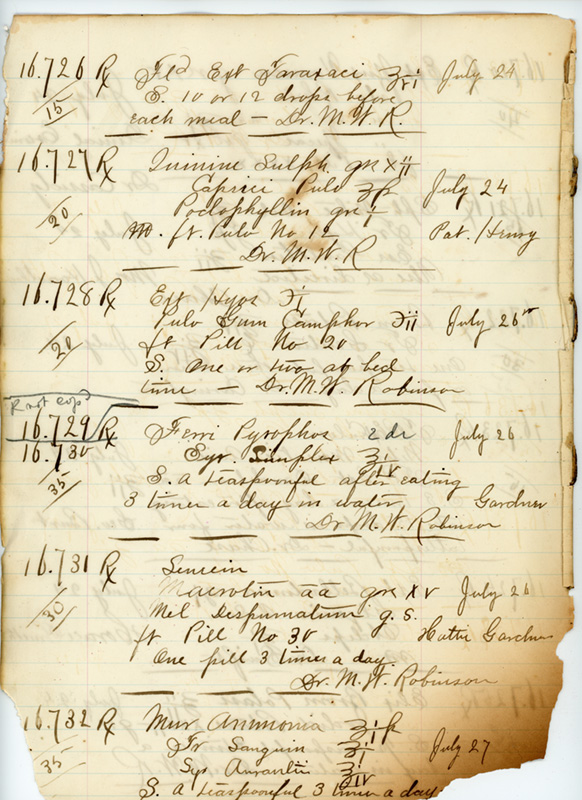 16.726 Rx Fld Ext Taraxaci ʒvi July 24
15 S. 10 or 12 drops before
each meal — Dr. M. W. R.
16.727 Rx Quinine Sulph. grs xii
Capsici Pulv July 24
20 Podophyllin gr i
M. ft. Pulv No 12 Pat. Henry
Dr. M. W. R
16.728 Rx Ext Hyos ℈i
Pulv Gum Camphor ℈ii July 26
20 ft Pill No 20
S. One or two at bed
time — Dr. M. W. Robinson
R not
16.729 Rx Ferri Pyrophos 2 dr July 26
16.730 Syr. Simplex ℥iv
35 S. a teaspoonful after eating
3 times a day in water Gardner
Dr M. W. Robinson
16.731 Rx Senecin
Macrotin aa grs xv July 26
30 Mel Despumatum q. s.
ft Pill No 30 Hattie Gardner
One pill 3 times a day.
Dr. M. W. Robinson
16.732 Rx Mur Ammonia
Tr Sanguin ℥i July 27
35 Syr Aurantii ℥iv
S. a teaspoonful 3 times a day